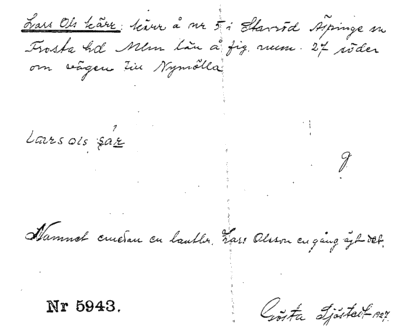 Lars Ols kärr: kärr å nr 5 i Stavröd Äspinge sn
Frosta hd Mlm län å fig. num. 27 söder
om vägen till Nymölla
Lars ols
Namnet emedan en lantbr. Lars Olsson en gång ägt det.
Nr 5943.
Gösta Sjöstedt 1927